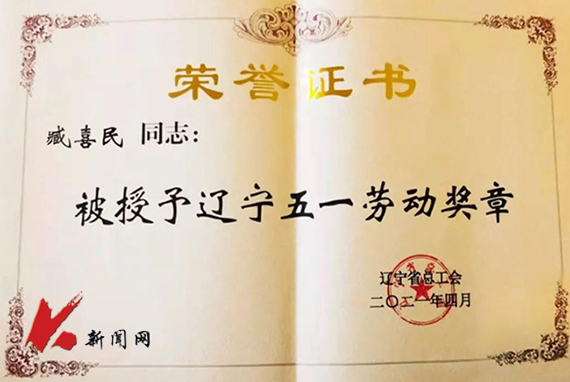 荣誉证书
臧喜民 同志：
被授予辽宁五一劳动奖章
辽宁省总工会
二〇二一年四月
新闻网